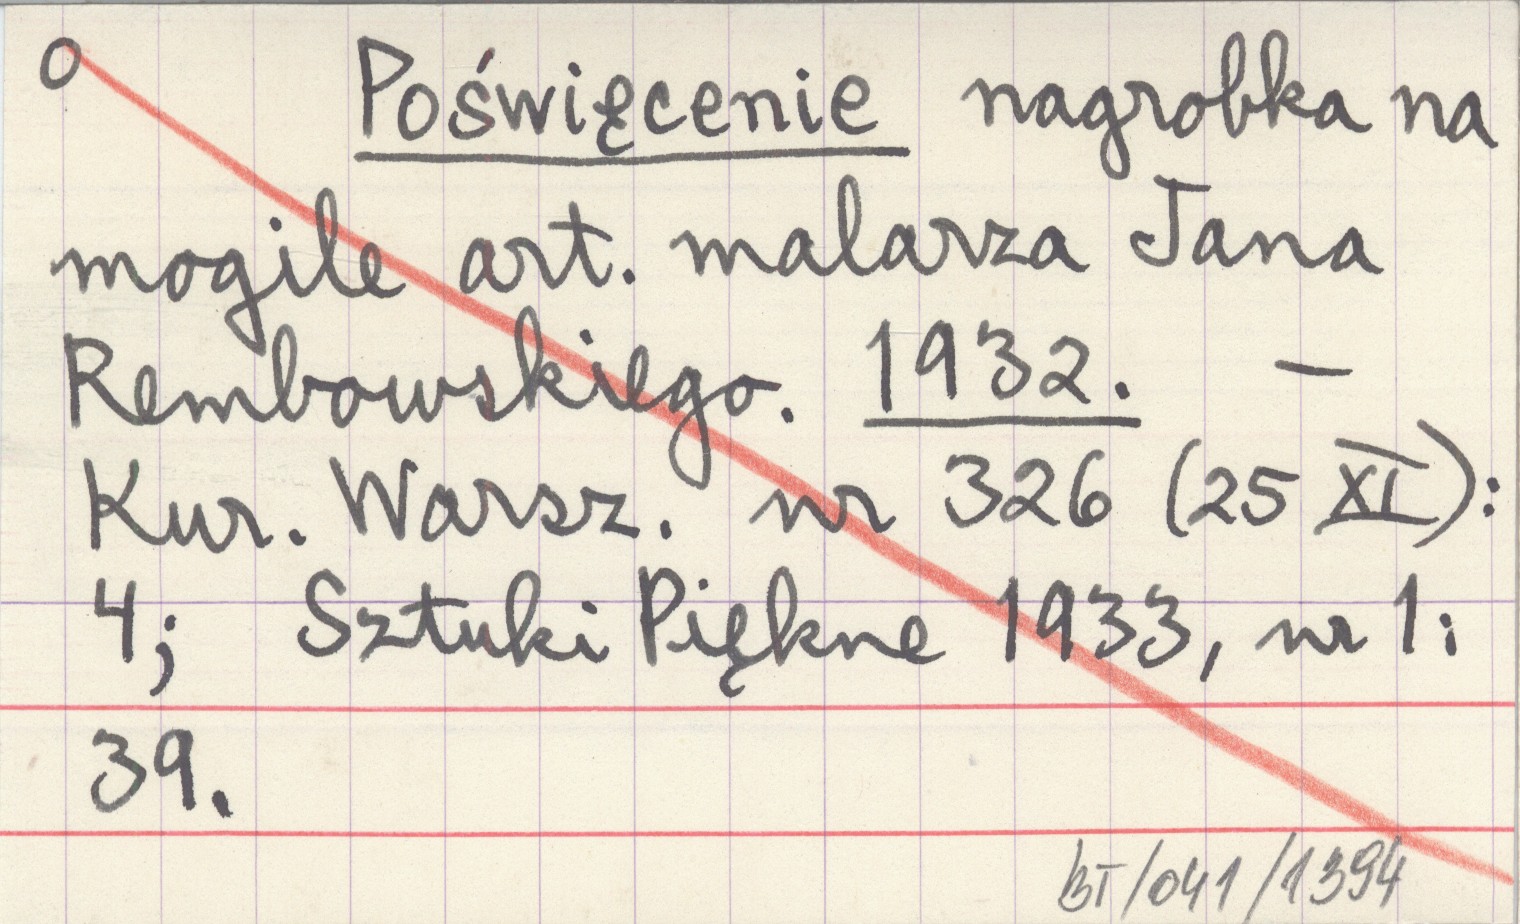 O Poświęcenie nagrobka na
mogile art. malarza Jana
Rembowskiego. 1932. –
Kur. Warsz. nr 326 (25 XI):
4; Sztuki Piękne 1933, nr 1:
39.
BT/041/1394